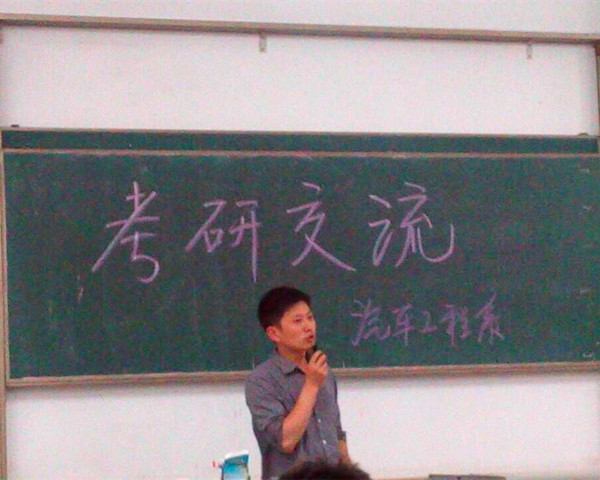 考研交流
汽车工程系